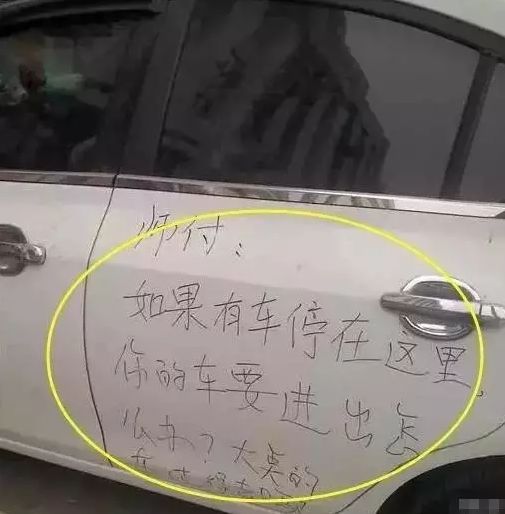 师付:
如果有车停在这里,
你的车要进出怎
么办?太臭的